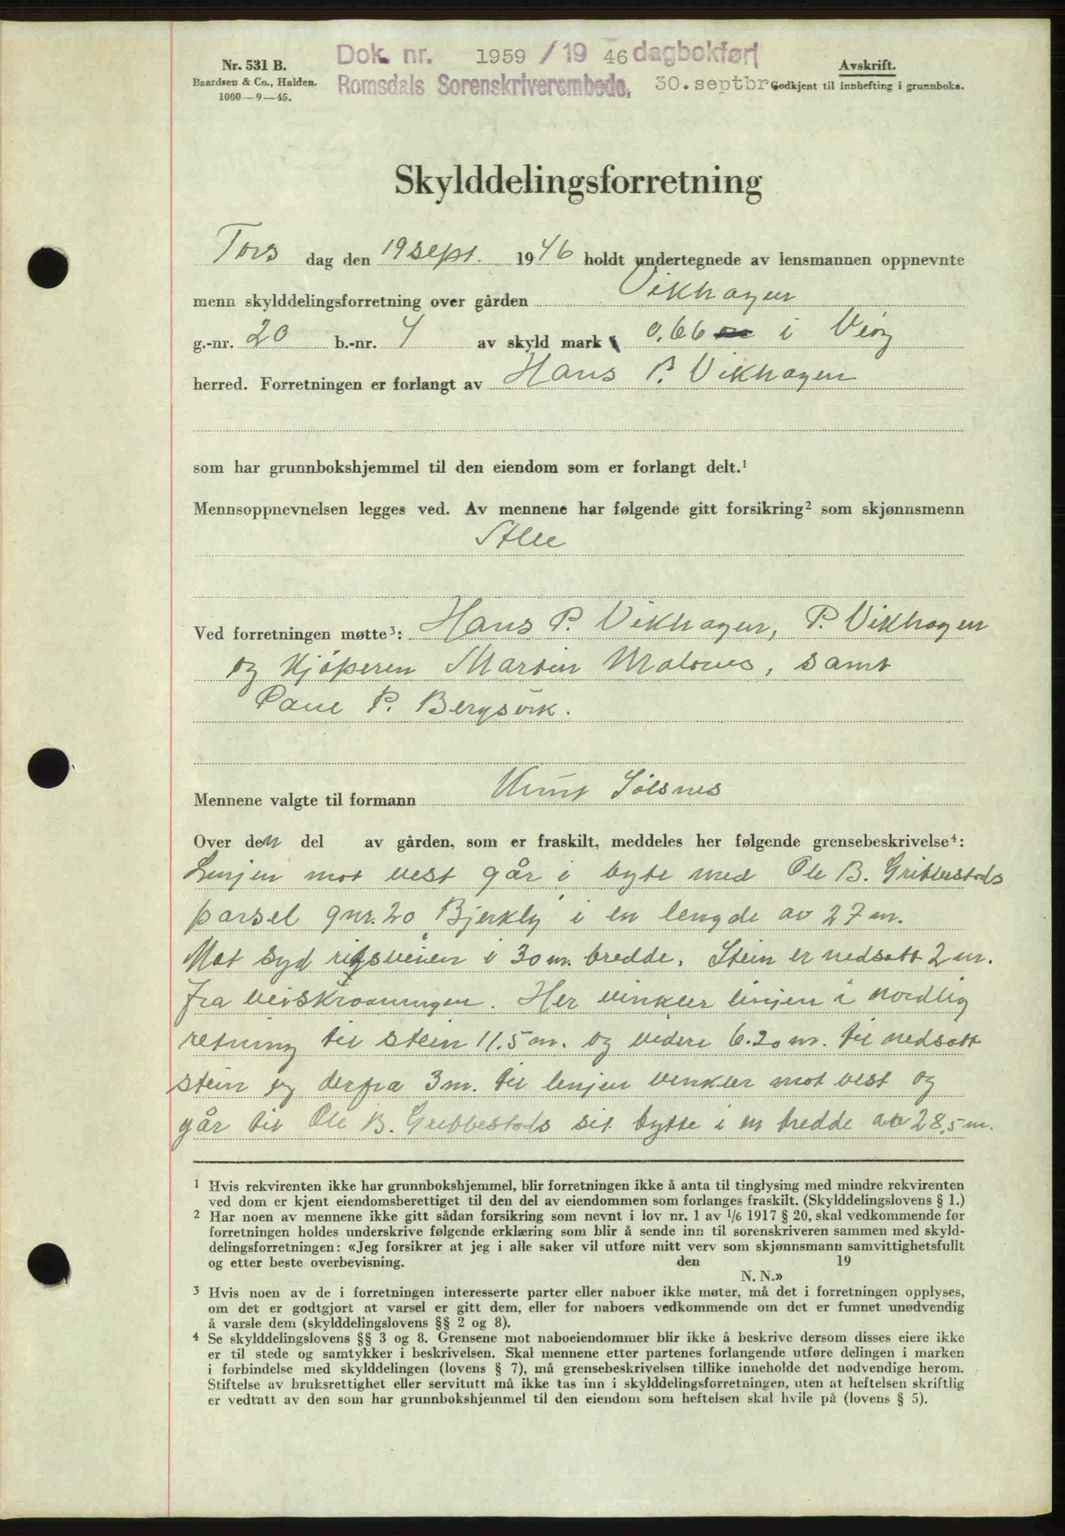 Nr. 531 B.
Baardsen & Co., Halden.
1000—9—45.
Dok. nr. 1959 / 19 46 dagbokført
Romsdals Sorenskriverembede, 30. septbr
Avskrift.
Godkjent til innhefting i grunnboka.
Skylddelingsforretning
Tors dag den 19 sept. 1946 holdt undertegnede av lensmannen oppnevnte
menn skylddelingsforretning over gården Vikhagen
g.-nr. 20 b.-nr. 4 av skyld mark 0.66 i Veøy
herred. Forretningen er forlangt av Hans P. Vikhagen
som har grunnbokshjemmel til den eiendom som er forlangt delt.¹
Mennsoppnevnelsen legges ved. Av mennene har følgende gitt forsikring² som skjønnsmenn
Alle
Ved forretningen møtte³: Hans P. Vikhagen, P. Vikhagen
og kjöperen Martin Malones, samt
Paul P. Bergsvik.
Mennene valgte til formann Knut Sølsnes
Over den del av gården, som er fraskilt, meddeles her følgende grensebeskrivelse⁴:
Linjen mot vest går i byte med Ole B. Gribbestads
parsel gnr. 20 "Bjerkly" i en lengde av 27 m.
Mot syd riksveien i 30 m. bredde. Stein er nedsatt 2 m.
fra veiskråningen. Her vinkler linjen i nordlig
retning til stein 11.5 m. og videre 6.20 m. til nedsatt
stein og derfra 3 m. til linjen vinkler mot vest og
går til Ole B. Gribbestads sit bytte i en bredde av 28,5 m.
¹ Hvis rekvirenten ikke har grunnbokshjemmel, blir forretningen ikke å anta til tinglysing med mindre rekvirenten
ved dom er kjent eiendomsberettiget til den del av eiendommen som forlanges fraskilt. (Skylddelingslovens § 1.)
² Har noen av mennene ikke gitt sådan forsikring som nevnt i lov nr. 1 av 1/6 1917 § 20, skal vedkommende før
forretningen holdes underskrive følgende erklæring som blir å sende inn til sorenskriveren sammen med skyld-
delingsforretningen: «Jeg forsikrer at jeg i alle saker vil utføre mitt verv som skjønnsmann samvittighetsfullt
og etter beste overbevisning. den 19
N. N.»
³ Hvis noen av de i forretningen interesserte parter eller naboer ikke møter, må det i forretningen opplyses,
om det er godtgjort at varsel er gitt dem, eller for naboers vedkommende om det er funnet unødvendig
å varsle dem (skylddelingslovens §§ 2 og 8).
⁴ Se skylddelingslovens §§ 3 og 8. Grensene mot naboeiendommer blir ikke å beskrive dersom disses eiere ikke
er til stede og samtykker i beskrivelsen. Skal mennene etter partenes forlangende utføre delingen i marken
i forbindelse med skylddelingen (lovens § 7), må grensebeskrivelsen tillike inneholde det nødvendige herom.
Stiftelse av bruksrettighet eller servitutt må ikke tas inn i skylddelingsforretningen, uten at heftelsen skriftlig
er vedtatt av den som har grunnbokshjemmel til den eiendom som heftelsen skal hvile på (lovens § 5).